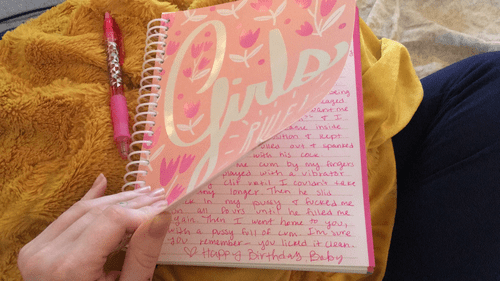 Girls
RULE!
being
caged
want me
& I
inside
& kept
out & spanked
with his cock.
me cum by my fingers
played with a vibrator
clit until I couldn't take
longer. Then he slid
in my pussy & fucked me
on all fours until he filled me
again. Then I went home to you,
with a pussy full of cum. I'm sure
you remember - you licked it clean.
♡ Happy Birthday Baby